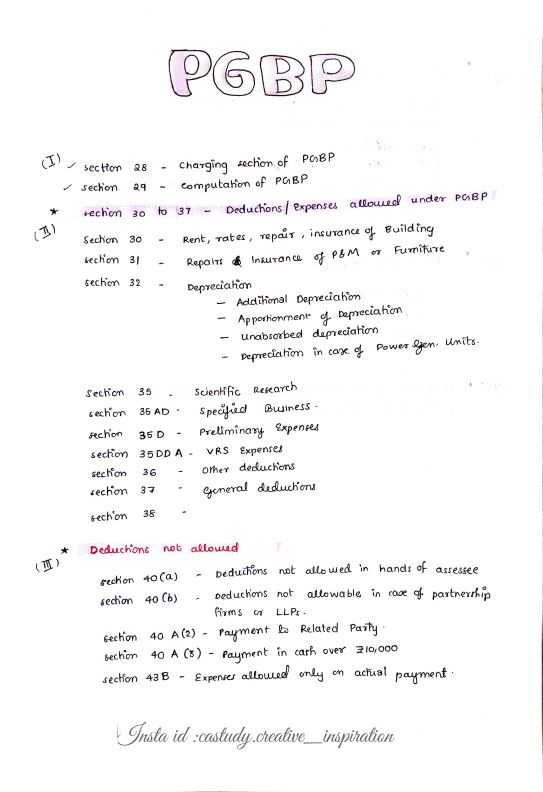 PGBP
(I) ✓ section 28 - charging section of PGBP
✓ section 29 - computation of PGBP
* section 30 to 37 - Deductions/Expenses allowed under PGBP
(II) Section 30 - Rent, rates, repair, insurance of Building
section 31 - Repairs & Insurance of P&M or Furniture
section 32 - Depreciation
- Additional Depreciation
- Apportionment of Depreciation
- Unabsorbed depreciation
- Depreciation in case of Power Gen. Units.
section 35 - Scientific Research
section 35 AD - Specified Business.
section 35 D - Preliminary Expenses
section 35 DD A - VRS Expenses
section 36 - Other deductions
section 37 - general deductions
section 38 -
(III) * Deductions not allowed
section 40(a) - Deductions not allowed in hands of assessee
section 40(b) - Deductions not allowable in case of partnership
firms or LLPs.
section 40 A(2) - Payment to Related Party.
section 40 A (3) - Payment in cash over ₹10,000
section 43B - Expenses allowed only on actual payment.
Insta id :castudy.creative_inspiration